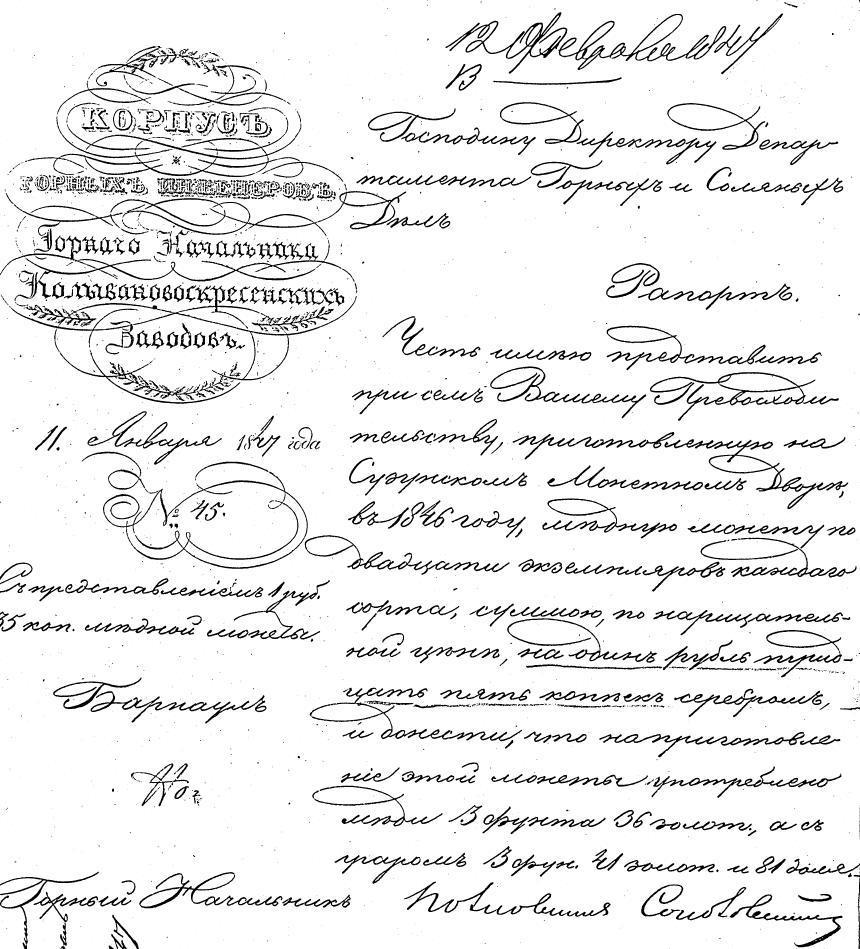 12 Февраля 1847
13
КОРПУСЪ
ГОРНЫХЪ ИНЖЕНЕРОВЪ
Горнаго Начальника
Колывановоскресенскихъ
Заводовъ.
11. Января 1847 года
№ 45.
Съ представленіемъ 1 руб.
35 коп. мѣдной монеты.
Барнаулъ
Господину Директору Депар-
тамента Горныхъ и Соляныхъ
Дѣлъ
Рапортъ.
Честь имѣю представить
при семъ Вашему Превосходи-
тельству, приготовленную на
Сузунскомъ Монетномъ Дворѣ,
въ 1846 году, мѣдную монету по
двадцати экземпляровъ каждаго
сорта, суммою, по нарицатель-
ной цѣнѣ, на одинъ рубль трид-
цать пять копѣекъ серебромъ,
и донести, что на приготовле-
ніе этой монеты употреблено
мѣди 3 фунта 36 золот., а съ
угаромъ 3 фун. 41 золот. и 81 доля.
Горный Начальникъ Полковникъ